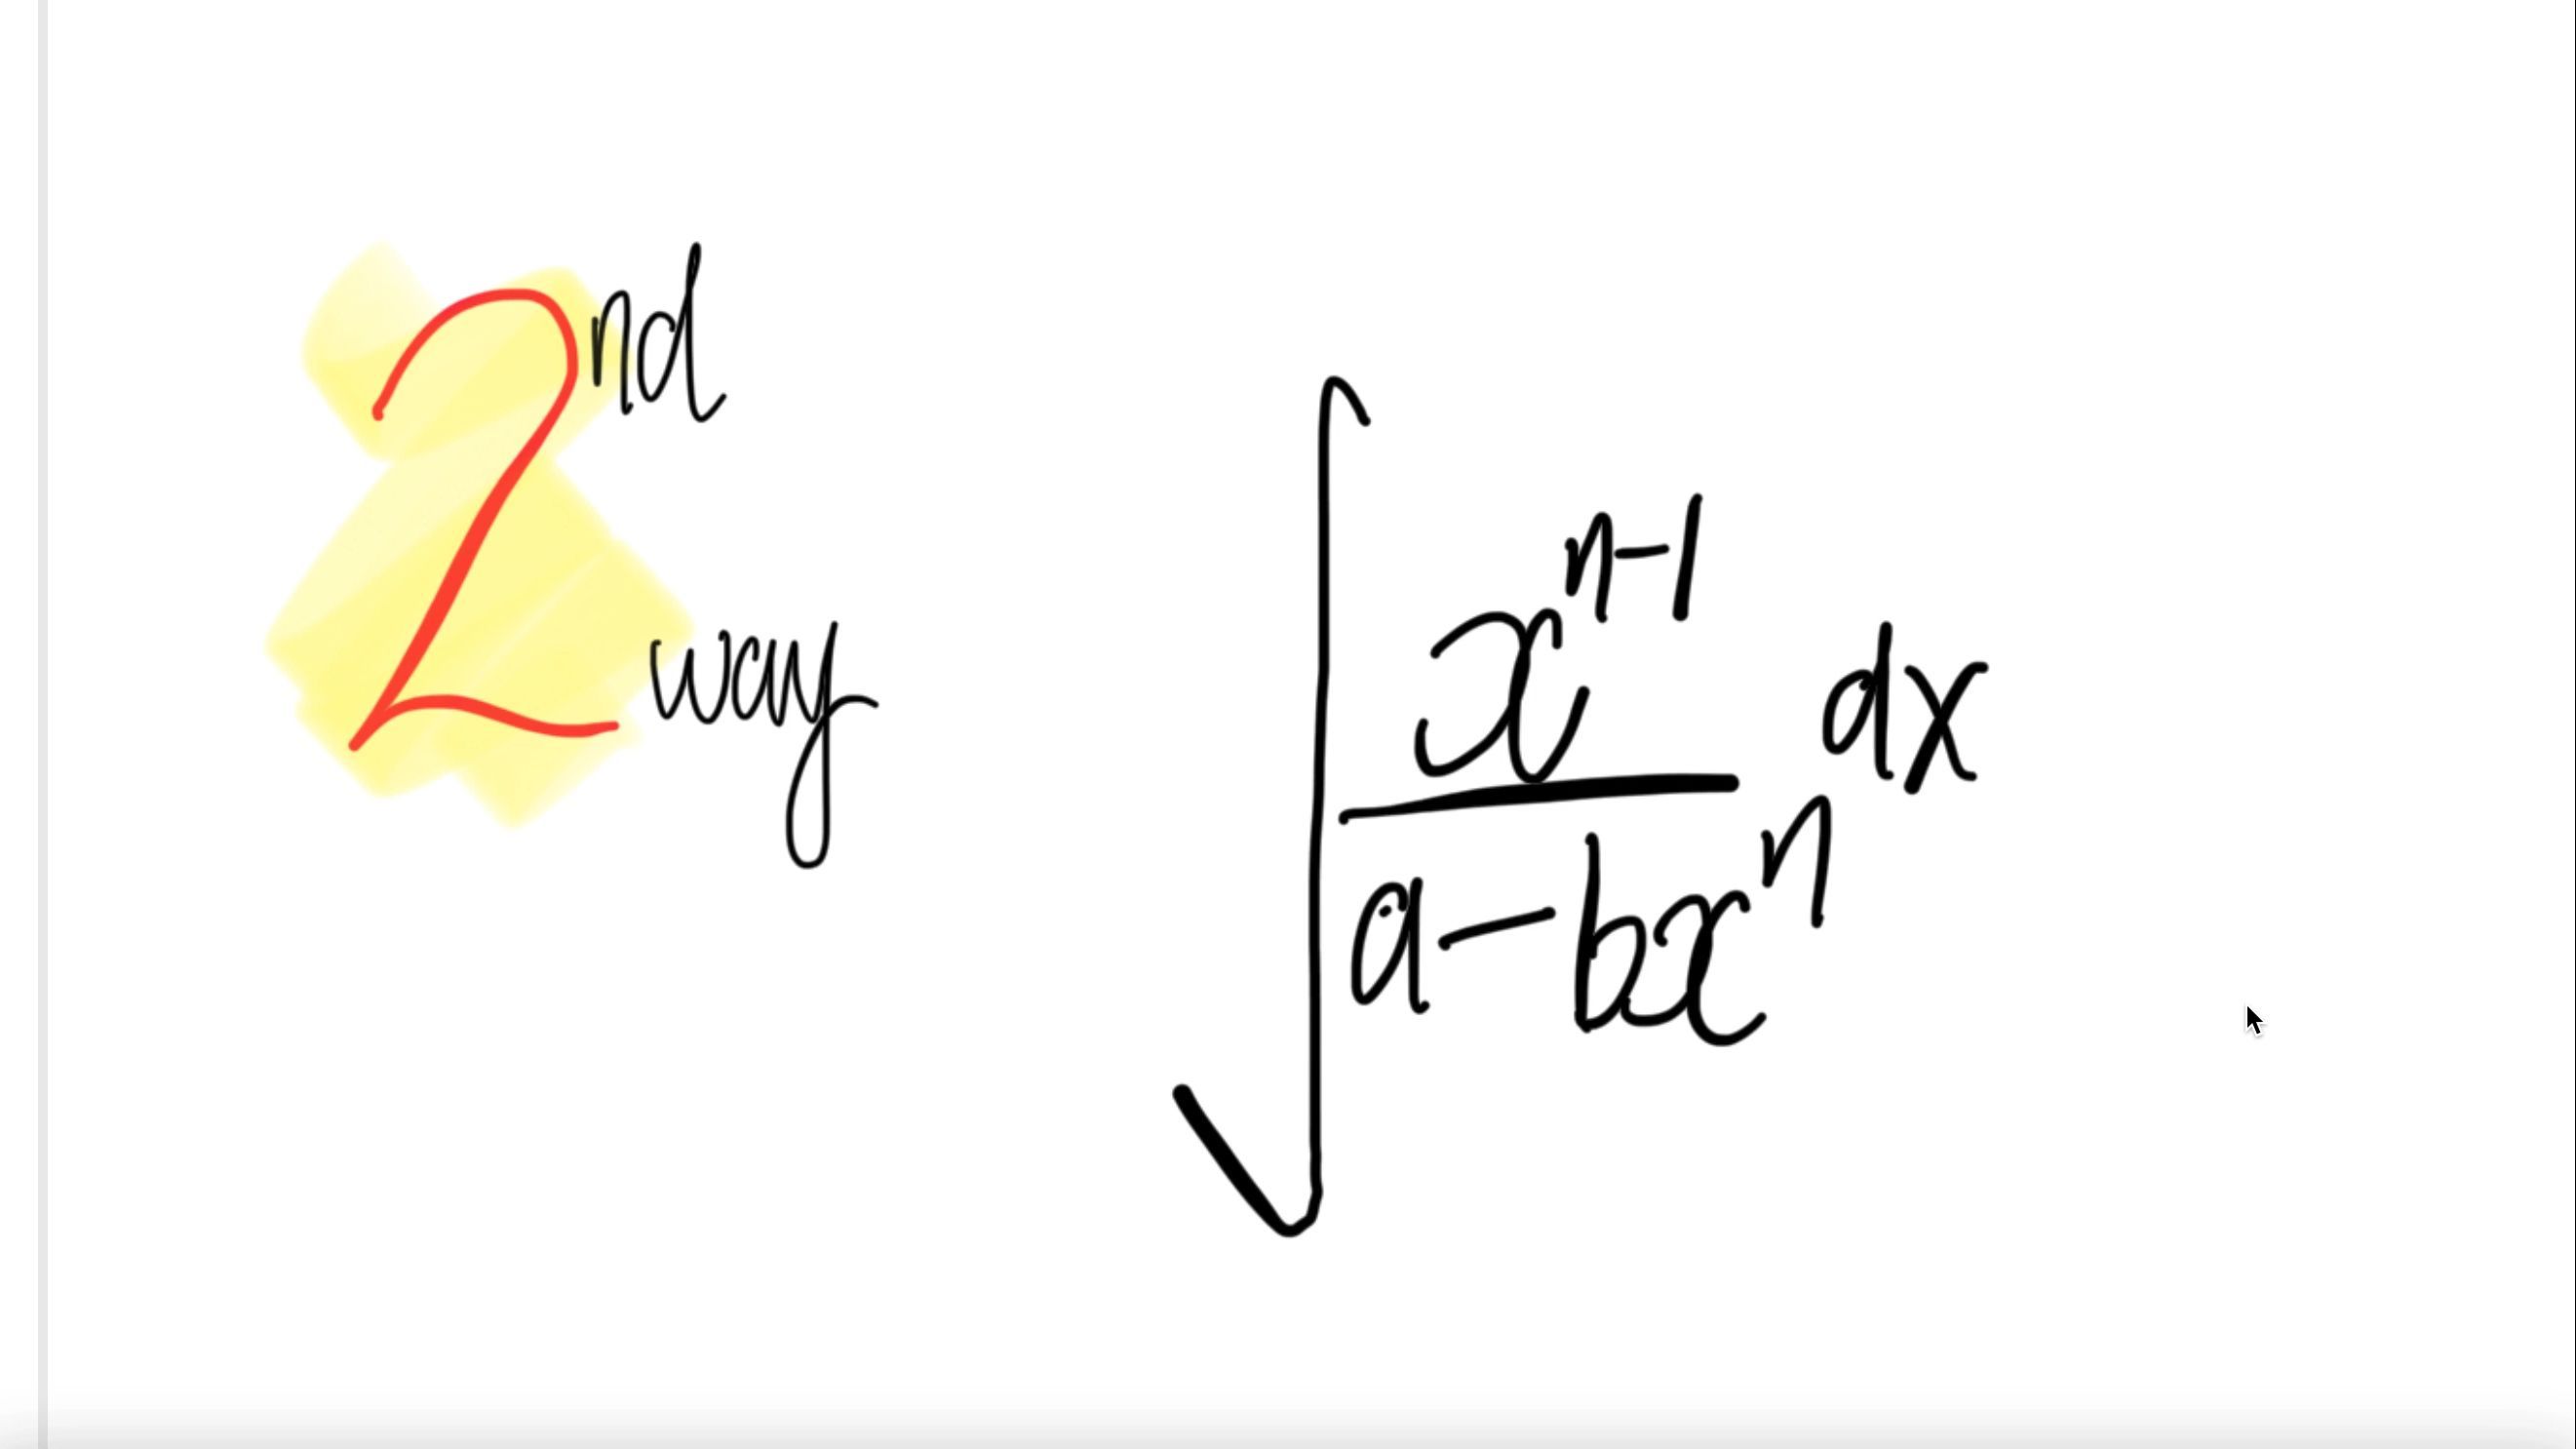 2nd
way
∫ x^{n-1} / (a-bx^n) dx